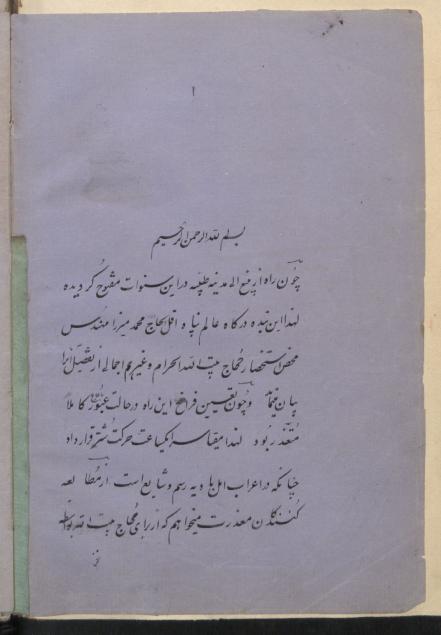 ۱
بسم الله الرحمن الرحیم
چون راه از ینبع الی مدینه طیبه در این سنوات مفتوح گردیده
لهذا این بنده درگاه عالم پناه اقل الحاج محمد میرزا مهندس
محض استحضار حجاج بیت الله الحرام و غیرهم اجمالی از تفصیل آنرا
بیان مینماید و چون تعیین فراسخ این راه در حالت عبور کاملاً
متعذر بود لهذا مقیاس را یکساعت حرکت شتر قرار داد
چنانکه در اعراب اهل بادیه رسم و شایع است از مطالعه
کنندگان معذرت میخواهم که از برای حجاج بیت الله